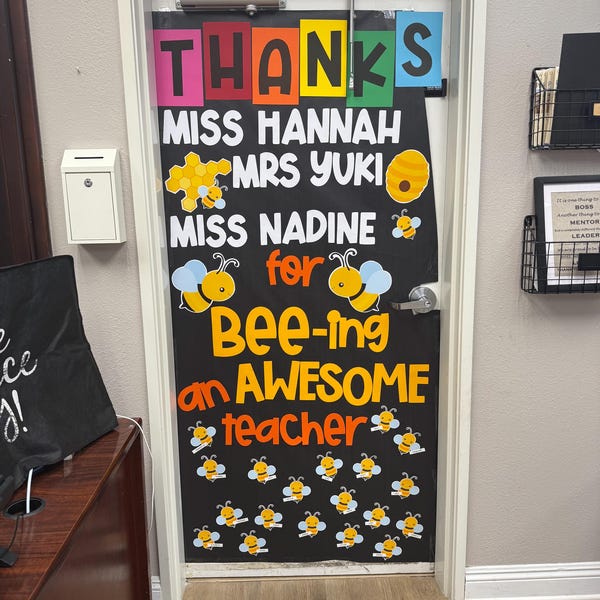 THANKS
MISS HANNAH
MRS YUKI
MISS NADINE
for
BEE-ing
an AWESOME
teacher
It is one thing to
BOSS
Another thing to
MENTOR
LEADER